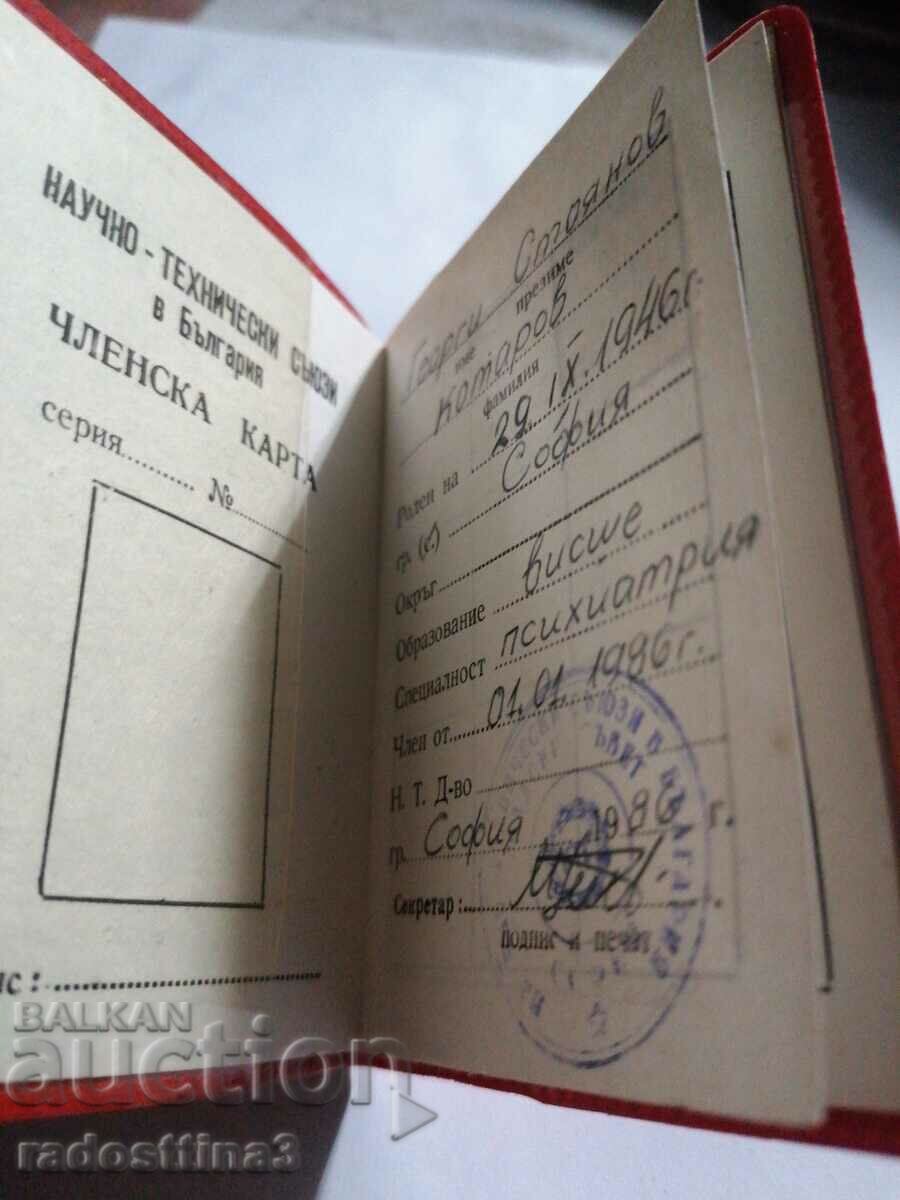 НАУЧНО - ТЕХНИЧЕСКИ СЪЮЗИ
в България
ЧЛЕНСКА КАРТА
серия....... №.......
ис: ..............................
Георги Стоянов
име презиме
Котаров
фамилия
Роден на 29.IX.1946г.
гр. (с.) София
Окръг
Образование висше
Специалност психиатрия
Член от 01.01.1986г.
Н. Т. Д-во
гр. София 1986 г.
Секретар:
подпис и печат
СЪЮЗИ В БЪЛГАРИЯ
BALKAN
auction
radosttina3